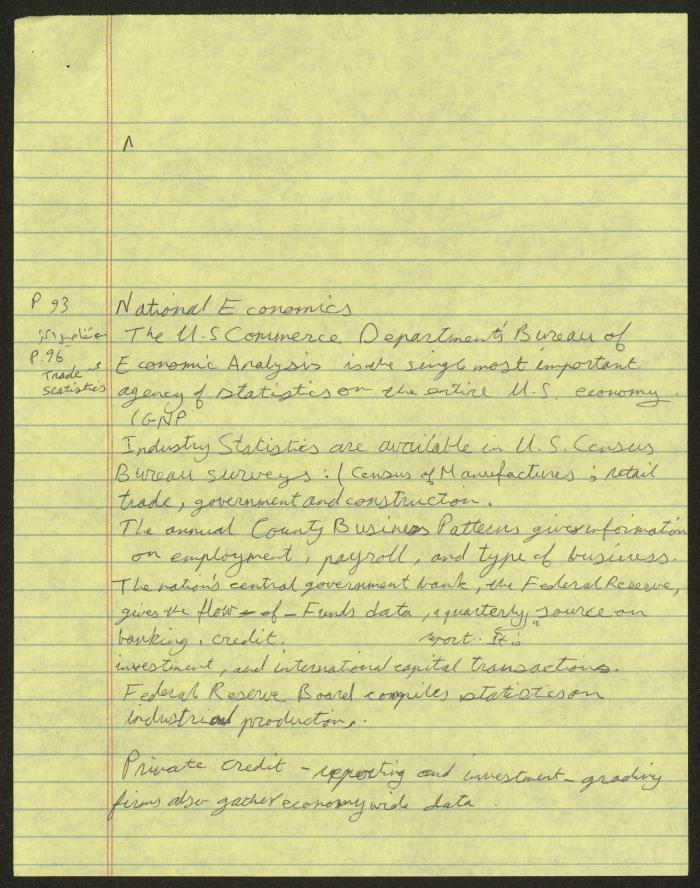 P 93
National Economics
The U.S Commerce Department's Bureau of
P.96
Economic Analysis is the single most important
Trade
statistics
agency of statistics on the entire U.S. economy.
(GNP
Industry Statistics are available in U.S. Census
Bureau surveys: (Census of Manufactures ; retail
trade, government and construction.
The annual County Business Patterns gives information
on employment, payroll, and type of business.
The nation's central government bank, the Federal Reserve,
gives the flow-of-Funds data, a quarterly, source on
banking, credit, report. It is
investment, and international capital transactions.
Federal Reserve Board compiles statistics on
industrial production.
Private credit-reporting and investment-grading
firms also gather economywide data.